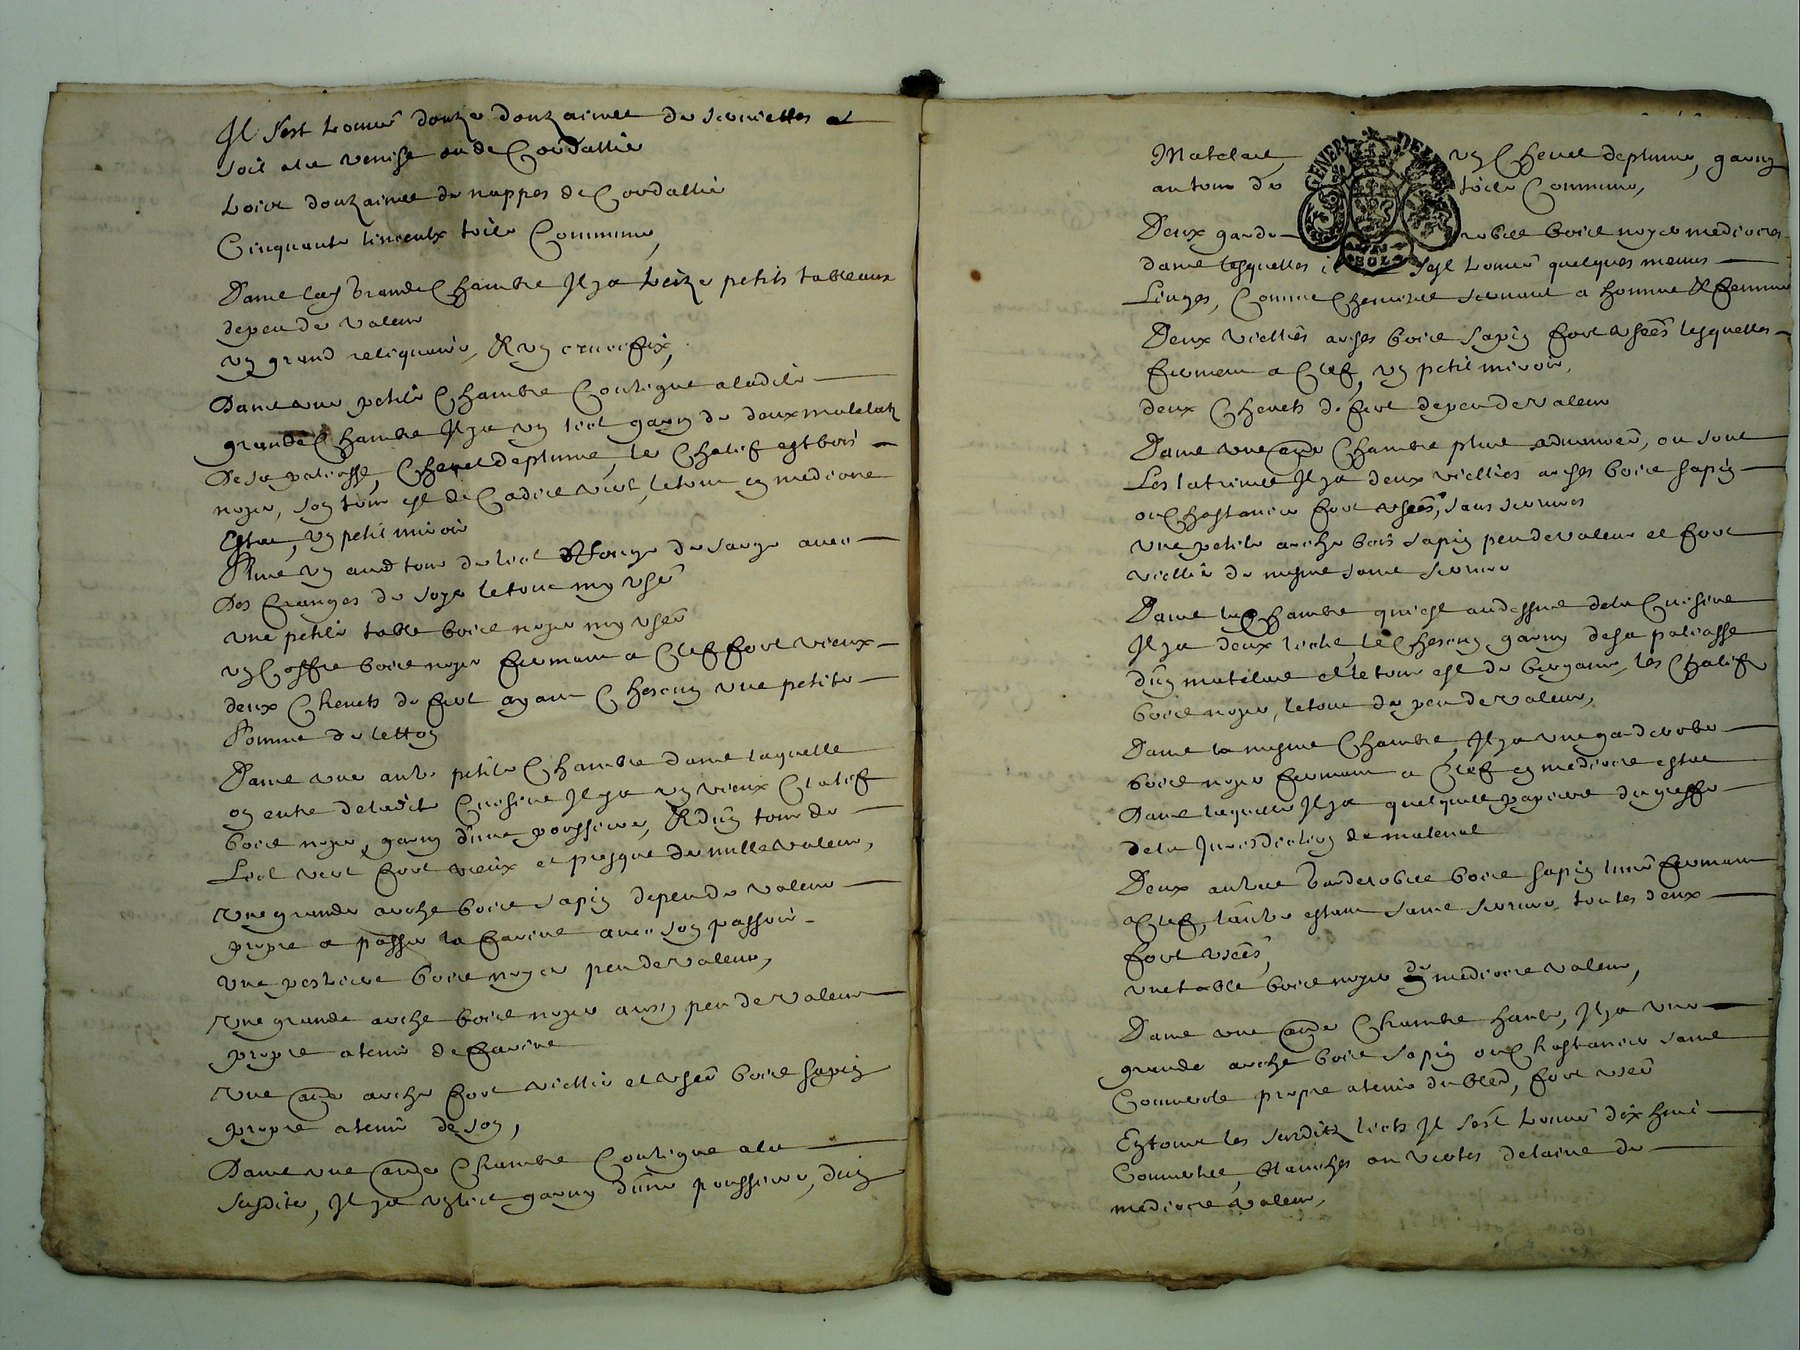 Il s'est trouvé douze douzaines de serviettes
soit a la venise ou de Cordallie
trois douzaines de nappes de Cordallie
Cinquante linceulx toile Commune,
Dans lad grande Chambre Il ya treize petits tableaux
de peu de valeur
un grand reliquaire, & un crucefix,
Dans une petite Chambre Contigue a ladite
grande Chambre Il ya un lict garny de deux matelatz
De sa paliasse, Chevet de plume, le Chalif est bois
noyer, son tour est de Cadice vert, le tout en mediocre
Estat, un petit miroir
Plus un aud tour de lict Rouge de sarge avec
Des franges de soye le tout my usé
une petite table bois noyer my usée
un Coffre bois noyer fermant a Clef fort vieux
deux Chenets de fert ayant Chescun une petite
Pomme de letton
Dans une autre petite Chambre dans laquelle
on entre de ladite Cuisine Il ya un vieux Chalif
bois noyer, garny d'une poussiere, & d'un tour de
Lict vert fort vieux et presque de nulle valeur,
Une grande arche bois sapin de peu de valeur
propre a passer la farine avec son passoir
une pestiere bois noyer peu de valeur,
Une grande arche bois noyer aussy peu de valeur
propre a tenir de farine
Une autre arche fort viellie et usée bois sapin
propre a tenir de son,
Dans une autre Chambre Contigue a la
susdite, Il ya un lict garny d'une poussiere, d'un
Matelas, un Chevet de plume, garny
au tour de toile Commune,
Deux garde robes bois noyer mediocres
dans lesquelles il s'est trouvé quelques menus
Linges, Comme Chemises servant a homme & femme
Deux viellies arches bois sapin fort usées lesquelles
ferment a Clef, un petit miroir,
deux Chenets de fert de peu de valeur
Dans une autre Chambre plus advancée, ou sont
Les latrines Il ya deux viellies arches bois sapin
ou Chastanier fort usées, sans serrures
une petite arche bois sapin peu de valeur et fort
viellie de mesme sans serrure
Dans la Chambre qui est au dessus de la Cuisine
Il ya deux lictz, le Chescun garny de sa paliasse
d'un matelas et le tour est de bergame, les Chalifz
bois noyer, le tout de peu de valeur,
Dans la mesme Chambre, Il ya une garderobe
bois noyer fermant a Clef en mediocre estat
Dans laquelle Il ya quelques papiers du greffe
de la Jurisdiction de
Deux autres garderobes bois sapin l'une fermant
a Clef, l'autre estant sans serrure, toutes deux
fort usées,
une table bois noyer de mediocre valeur,
Dans une autre Chambre haute, Il ya une
grande arche bois sapin ou Chastanier sans
Couvercle propre a tenir du bled, fort usée
En tous les susditz lictz Il s'est trouvé dix huit
Couvertes, blanches ou vertes de laine de
mediocre valeur,